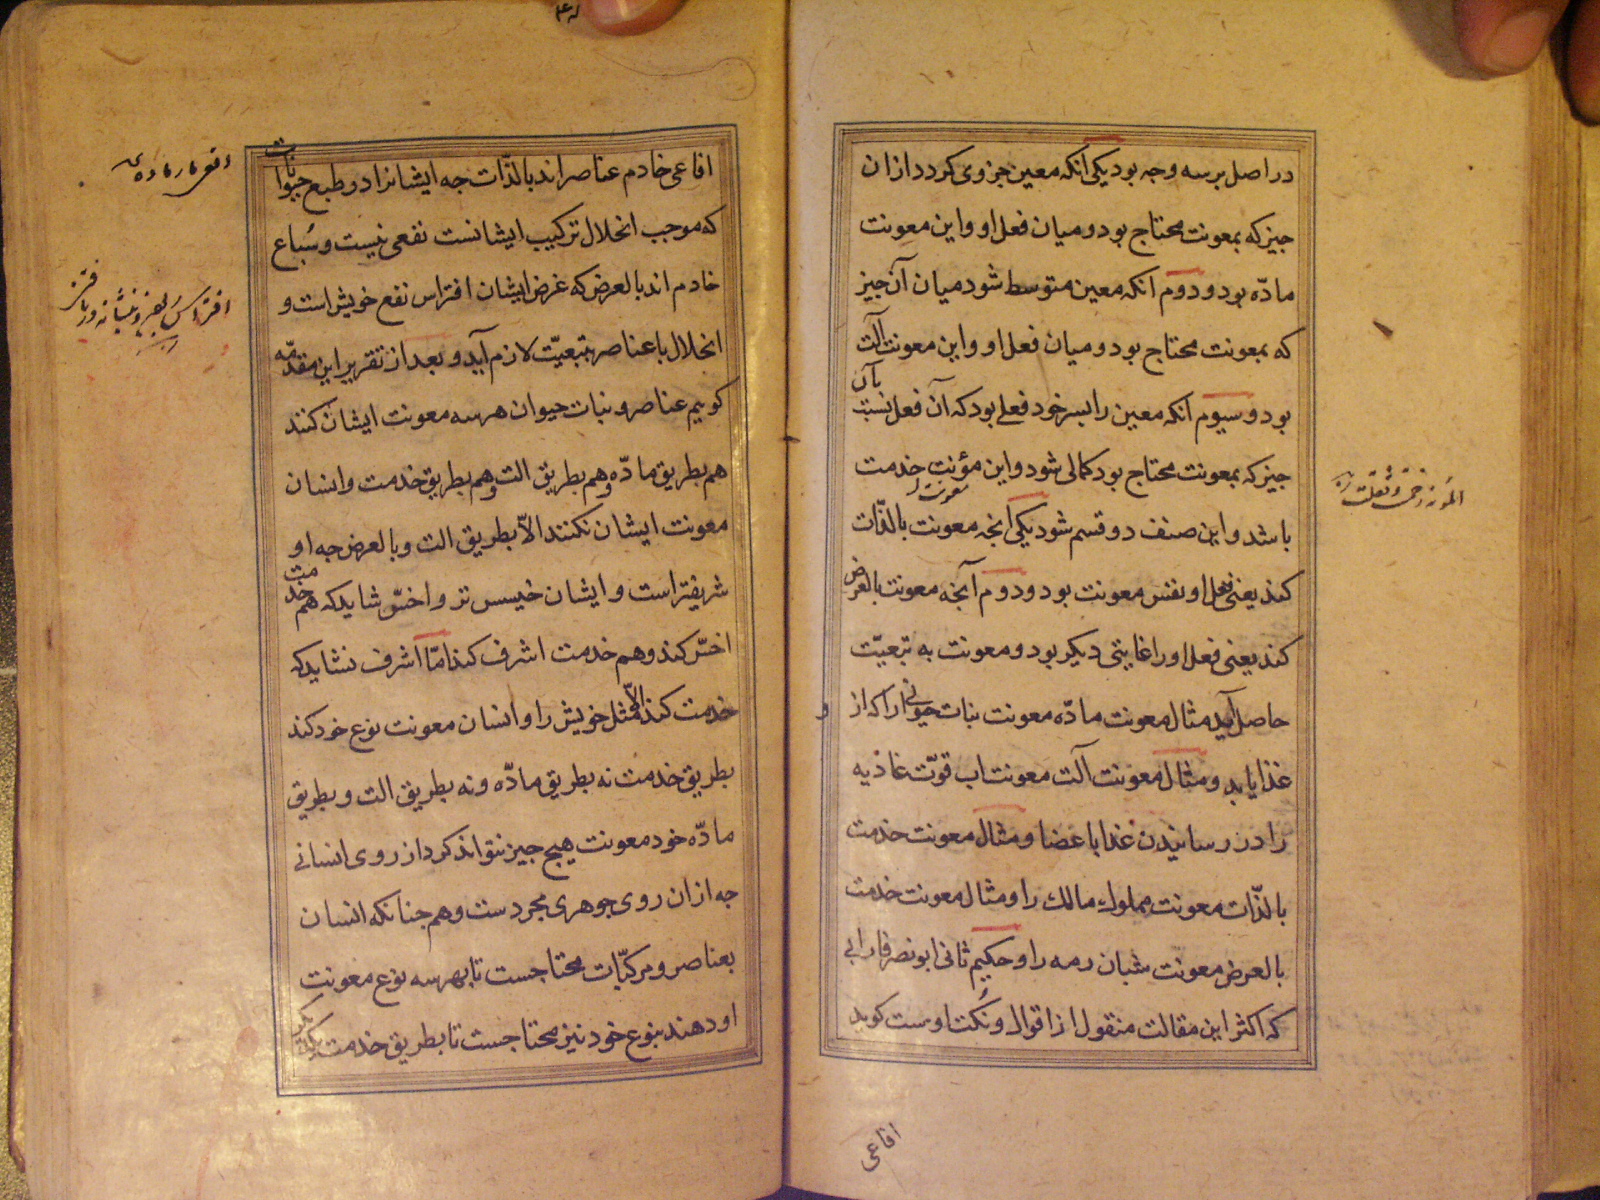 در اصل بر سه وجه بود یکی انکه معین جزوی کردد از ان
جیز که بمعونت محتاج بود و میان فعل او و این معونت
مادّه بود و دوم انکه معین متوسط شود میان آن جیز
که بمعونت محتاج بود و میان فعل او و این معونت آلت
بود و سیوم آنکه معین را بسر خود فعلی بود که آن فعل نسبت بآن
جیز که بمعونت محتاج بود کمالی شود و این مؤنت خدمت
معونت
باشد و این صنف دو قسم شود یکی انجه معونت بالذّات
کند یعنی فعل او نفس معونت بود و دوم آنجه معونت بالعرض
کند یعنی فعل او را غایتی دیکر بود و معونت به تبعیّت
حاصل آید مثال معونت مادّه معونت نبات حیوانی را که از
غذا یابد و مثال معونت آلت معونت اب قوّت غاذیه
را در رسانیدن غذا باعضا و مثال معونت خدمت
بالذّات معونت مملوك مالك را و مثال معونت خدمت
بالعرض معونت شبان رمه را و حکیم ثانی ابو نصر فارابی
که اکثر این مقالت منقول از اقوال و نُکت اوست کوید
افاعی
افاعی خادم عناصر اند بالذّات جه ایشانرا در طبع حیوانات
که موجب انحلال ترکیب ایشانست نفعی نیست و سُباع
خادم اند بالعرض که غرض ایشان افتراس نفع خویش است و
انحلال با عناصر بتبعیّت لازم آید و بعد از تقریر این مقدّمه
کوییم عناصر و نبات حیوان هر سه معونت ایشان کنند
هم بطریق مادّه و هم بطریق الت و هم بطریق خدمت و انسان
معونت ایشان نکنند الاّ بطریق الت و بالعرض جه او
شریفتر است و ایشان خسیس تر و اخسّ شاید که هم خدمت
اخسّ کند و هم خدمت اشرف کند امّا اشرف نشاید که
خدمت کند الاّ مثل خویش را و انسان معونت نوع خود کند
بطریق خدمت نه بطریق مادّه و نه بطریق الت و بطریق
مادّه خود معونت هیج جیز نتواند کرد از روی انسانی
جه از ان روی جوهری مجردست و هم جنانکه انسان
بعناصر و مرکبّات محتاجست تا بهر سه نوع معونت
او دهند بنوع خود نیز محتاجست تا بطریق خدمت یکدیکر